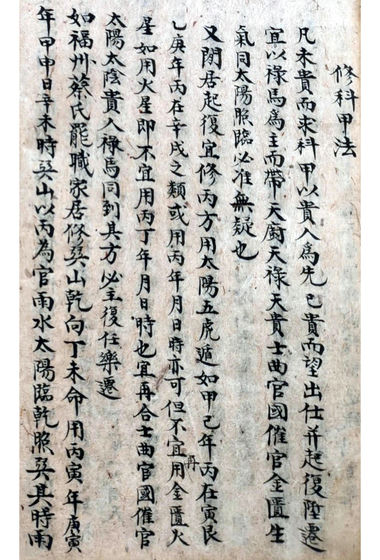 修科甲法
凡未貴而求科甲以貴人為先已貴而望出仕并起復陞遷
宜以祿馬為主而帶天廚天祿天貴士曲官國催官金匱生
氣同太陽照臨必准無疑也
又閉居起復宜修丙方用太陽五虎遁如甲己年丙在寅艮
乙庚年丙在辛戌之類或用丙年月日時亦可但不宜用金匱火
星如用火星即不宜用丙丁年月日時也宜再合士曲官國催官
太陽太陰貴人祿馬同到其方必主復任樂遷
如福州蔡氏罷職家居修巽山乾向丁未命用丙寅年庚寅
年甲申日辛未時巽山以丙為官雨水太陽臨乾照巽其時雨